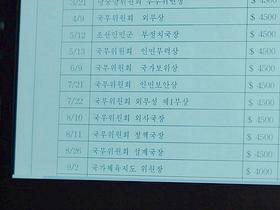 3/21 $ 4500
4/9 국무위원회 외무상 $ 4500
5/12 조선인민군 부정치국장 $ 4500
5/13 국무위원회 인민무력상 $ 4500
6/9 국무위원회 국가보위상 $ 4500
7/21 국무위원회 인민보안상 $ 4500
7/22 국무위원회 외무성 제1부상 $ 4500
8/10 국무위원회 외사국장 $ 4500
8/11 국무위원회 정책국장 $ 4500
8/26 국무위원회 설계국장 $ 4500
9/2 국가체육지도 위원장 $ 4000